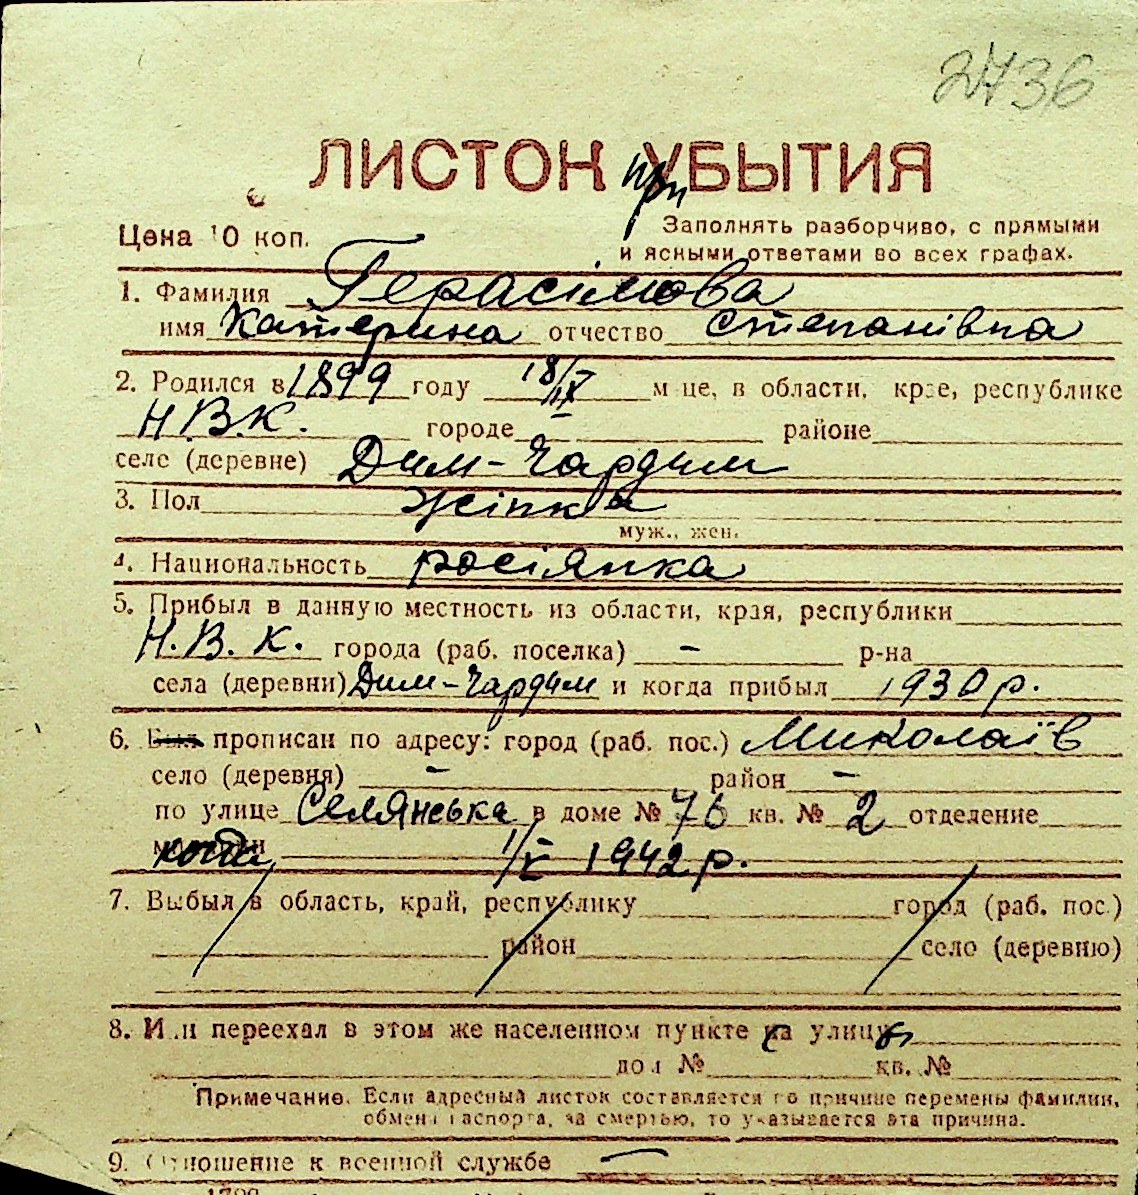 2736
ЛИСТОК при УБЫТИЯ
Цена 10 коп.
Заполнять разборчиво, с прямыми
и ясными ответами во всех графах.
1. Фамилия Герасімова
имя Катерина отчество Степанівна
2. Родился в 1899 году 18/IX м-це, в области, крае, республике
Н.В.К. городе - районе
селе (деревне) Дим-Чардим
3. Пол жінка
муж., жен.
4. Национальность росіянка
5. Прибыл в данную местность из области, края, республики
Н.В.К. города (раб. поселка) - р-на
села (деревни) Дим-Чардим и когда прибыл 1930 р.
6. Был прописан по адресу: город (раб. пос.) Миколаїв
село (деревня) - район -
по улице Селянська в доме № 76 кв. № 2 отделение
коли 1/V 1942 р.
7. Выбыл в область, край, республику город (раб. пос.)
район село (деревню)
8. Или переехал в этом же населенном пункте с на улицы
дом № кв. №
Примечание. Если адресный листок составляется по причине перемены фамилии,
обмена паспорта, за смертью, то указывается эта причина.
9. Отношение к военной службе —